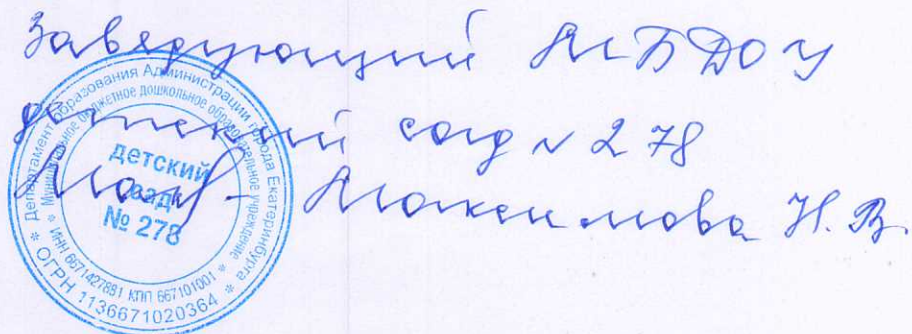 Заведующий МБДОУ
детский сад № 278
Максимова Н.В.
Департамент образования Администрации города Екатеринбурга
Муниципальное бюджетное дошкольное образовательное учреждение
детский
сад
№ 278
ИНН 6671427881 КПП 667101001
ОГРН 1136671020364